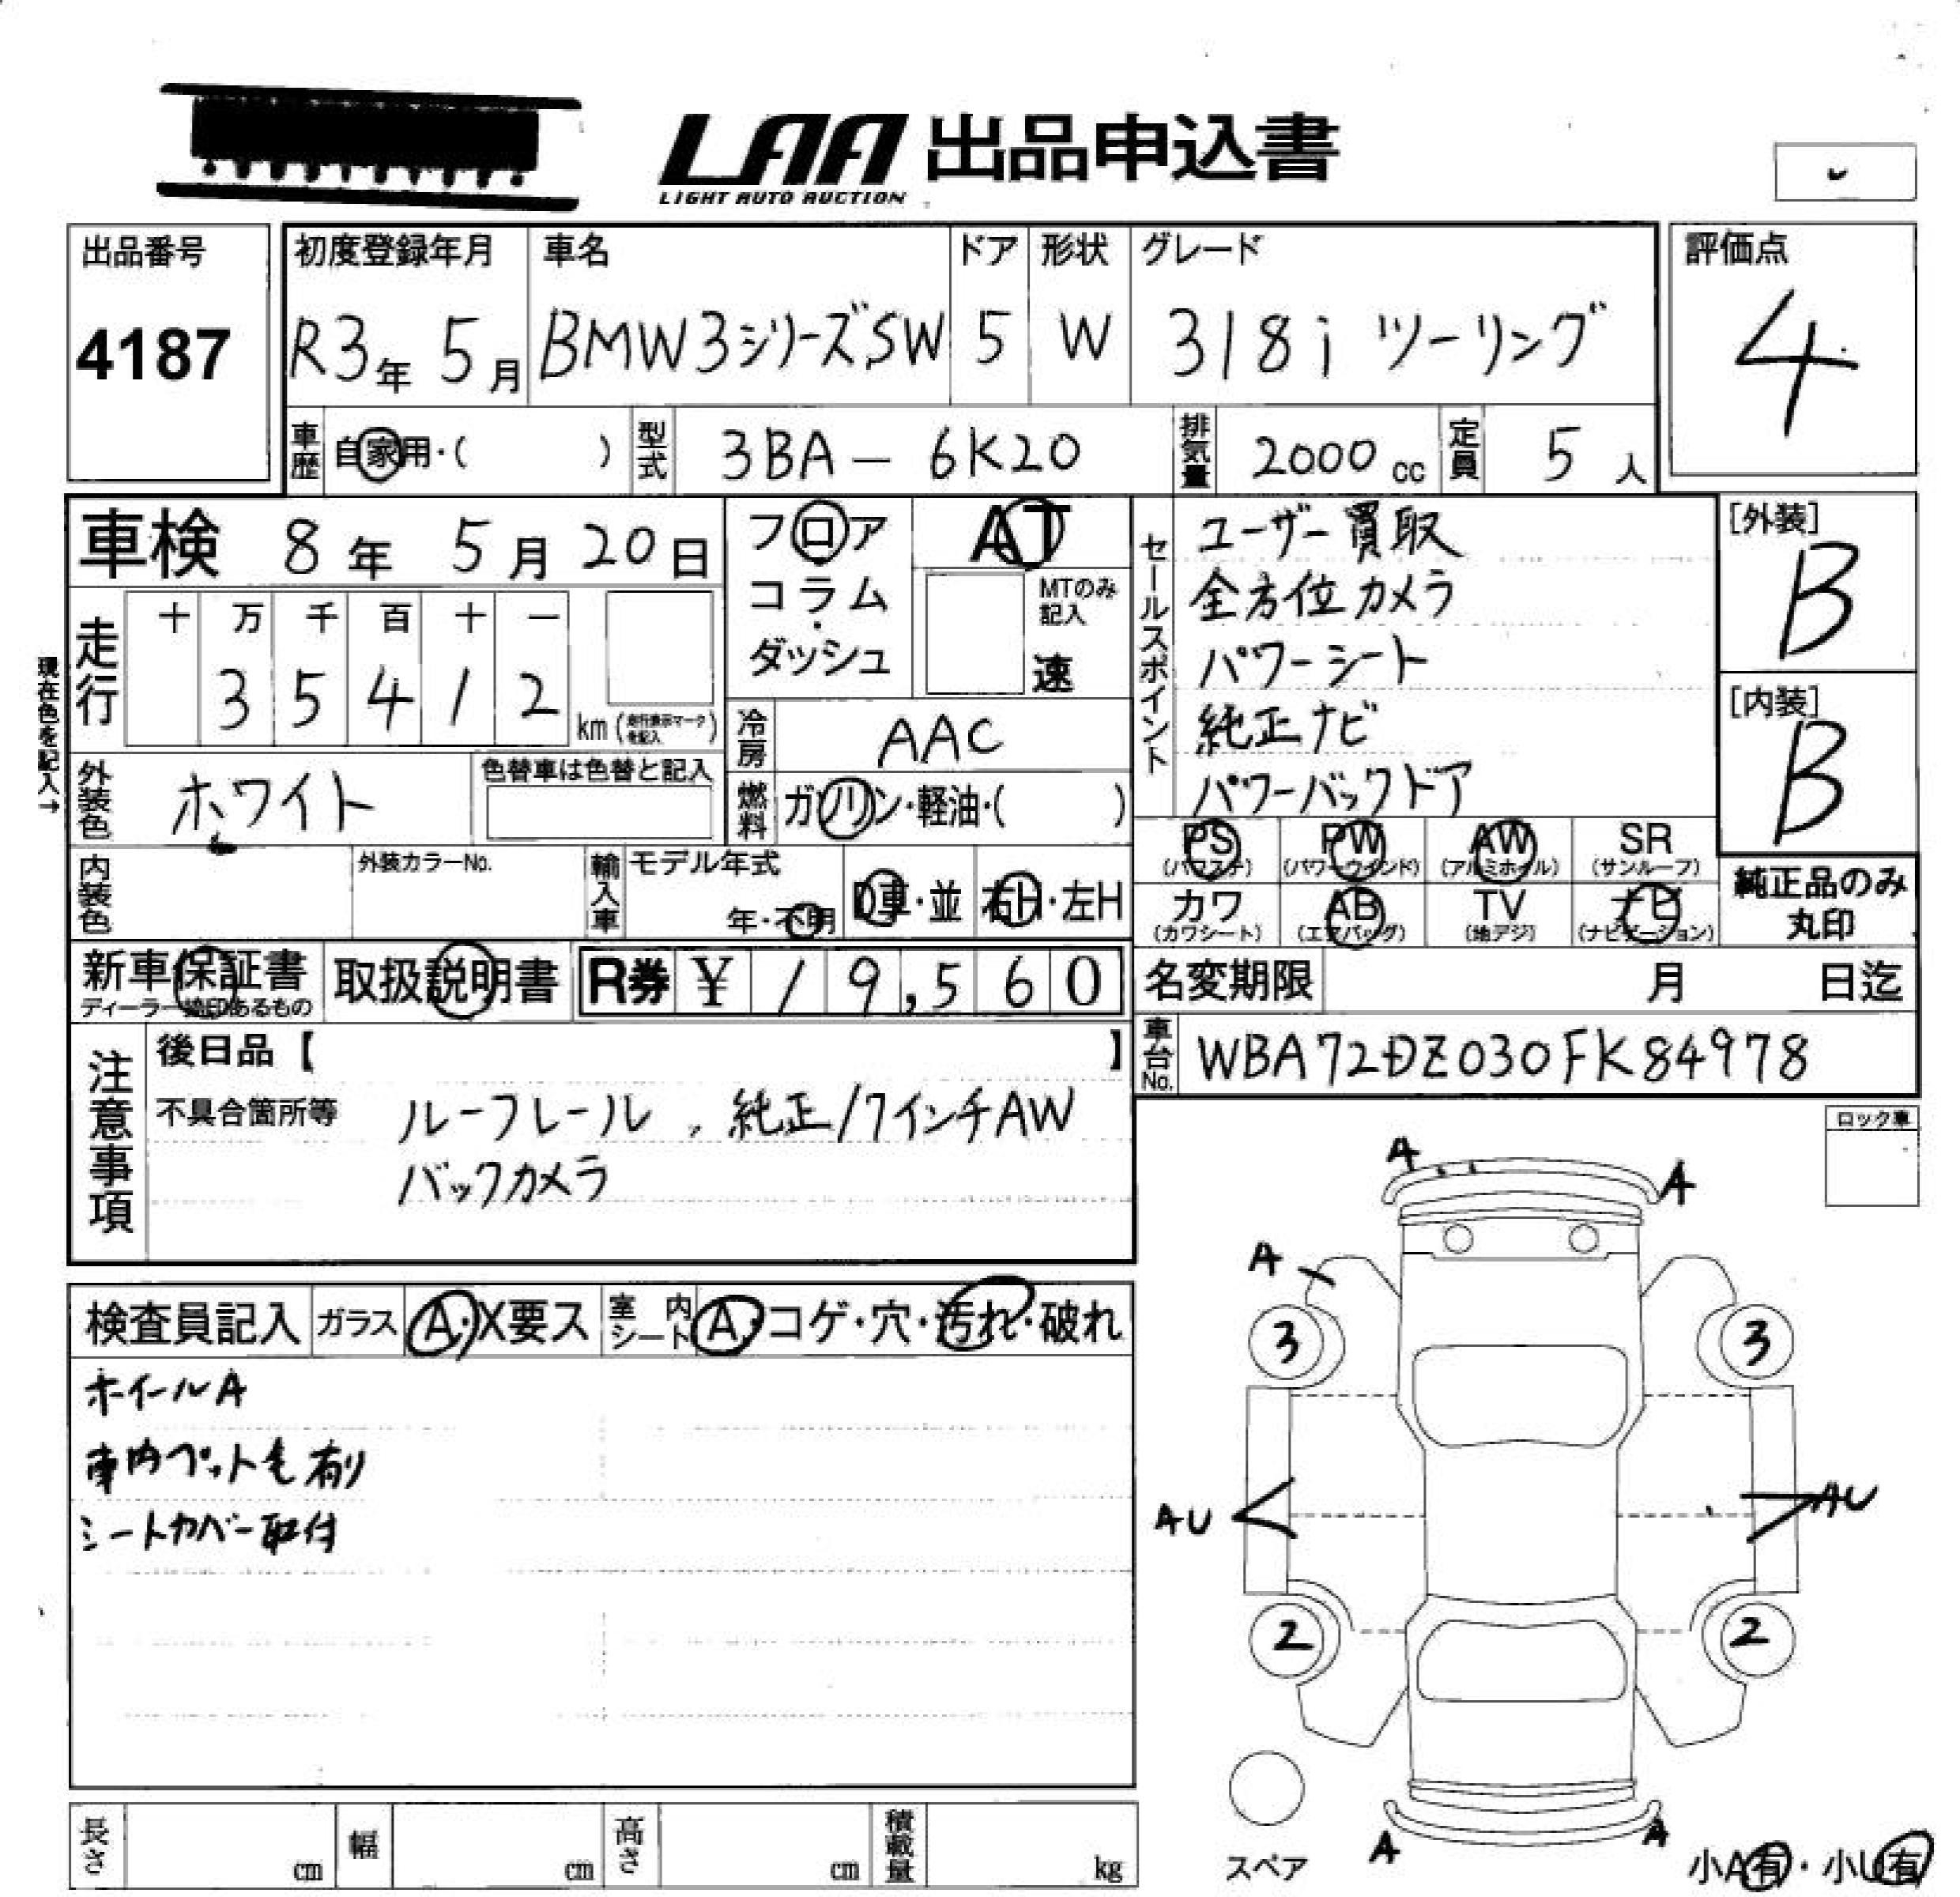 LAA 出品申込書
LIGHT AUTO AUCTION
出品番号
4187
初度登録年月
R3年 5月
車名
BMW3シリーズSW
ドア
5
形状
W
グレード
318i ツーリング
評価点
4
車歴
自家用・( )
型式
3BA－6K20
排気量
2000 cc
定員
5 人
車検 8年 5月 20日
走行
十 万 千 百 十 一
3 5 4 1 2
km (走行表示マークを記入)
現在色を記入→
外装色
ホワイト
色替車は色替と記入
内装色
外装カラーNo.
輸入車
モデル年式
年・不明
D車・並
右H・左H
フロア
コラム
・
ダッシュ
AT
MTのみ
記入
速
冷房
AAC
燃料
ガソリン・軽油・( )
セールスポイント
ユーザー買取
全方位カメラ
パワーシート
純正ナビ
パワーバックドア
[外装]
B
[内装]
B
PS
(パワステ)
PW
(パワーウィンド)
AW
(アルミホイル)
SR
(サンルーフ)
カワ
(カワシート)
AB
(エアバッグ)
TV
(地デジ)
ナビ
(ナビゲーション)
純正品のみ
丸印
新車保証書
ディーラー捺印あるもの
取扱説明書
R券 ¥ 19,560
名変期限 月 日迄
車台No.
WBA72DZ030FK84978
注意事項
後日品【 】
不具合箇所等 ルーフレール、純正17インチAW
バックカメラ
ロック車
検査員記入
ガラス A・X要ス
室内シート A・コゲ・穴・汚れ・破れ
ホイールA
車内ペット毛有り
シートカバー取付
A
A
A
3
3
AU
AU
2
2
A
A
スペア
小A有・小U有
長さ cm
幅 cm
高さ cm
積載量 kg